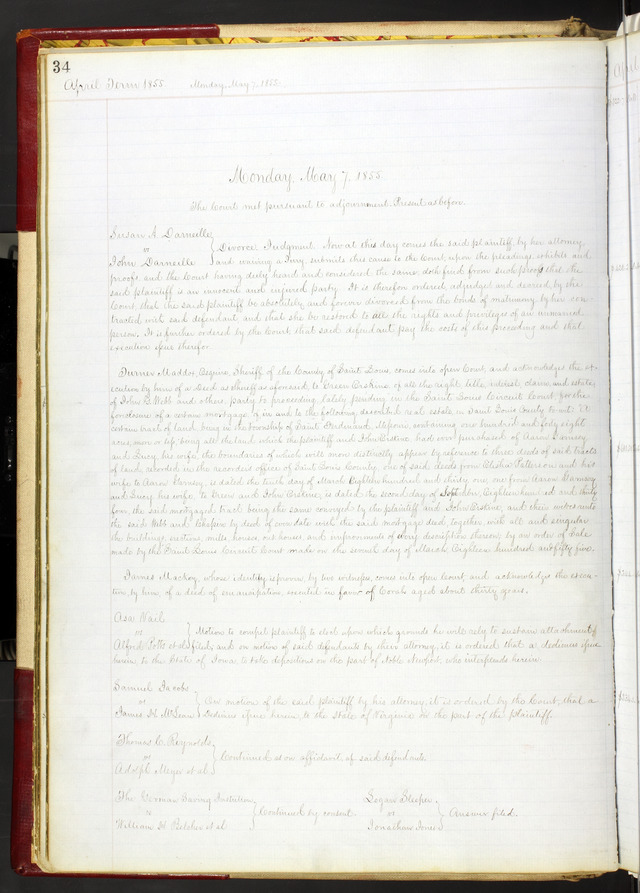 34
April Term 1855 Monday, May 7, 1855.
Monday, May 7, 1855
The Court met pursuant to adjournment. Present as before.
Susan A. Darneille
vs
John Darneille
Divorce Judgment. Now at this day comes the said plaintiff, by her attorney
and waiving a Jury, submits this cause to the Court, upon the pleadings, exhibits and
proofs, and the Court having duly heard and considered the same doth find from such proofs that the
said plaintiff is an innocent and injured party. It is therefore ordered, adjudged and decreed, by the
Court, that the said plaintiff be absolutely and forever divorced from the bonds of matrimony, by her con-
tracted with said defendant and that she be restored to all the rights and privileges of an unmarried
person. It is further ordered by the Court that said defendant pay the costs of this proceeding and that
execution issue therefor.
Turner Maddox, Esquire, Sheriff of the County of Saint Louis, comes into open Court, and acknowledges the ex-
ecution by him of a Deed as sheriff as aforesaid, to Green Erskine of all the right, title, interest, claim, and estate
of John B. Webb and others, party to proceeding lately pending in the Saint Louis Circuit Court, for the
foreclosure of a certain mortgage of, in and to the following described real estate in Saint Louis County to wit: "A
certain tract of land being in the township of Saint Ferdinand, Missouri, containing one hundred and forty eight
acres, more or less, being all the land which the plaintiff and John Erskine had ever purchased of Aaron
and Lucy, his wife, the boundaries of which will more distinctly appear by reference to three deeds of said tracts
of land, recorded in the recorders office of Saint Louis County, one of said deeds from Elisha Patterson and his
wife to Aaron, is dated the tenth day of March Eighteen hundred and thirty one, one from Aaron
and Lucy his wife to Green and John Erskine, is dated the second day of September, Eighteen hundred and thirty
four, the said mortgaged tract being the same conveyed by the plaintiff and John Erskine, and their wives unto
the said Webb and by deed of even date with the said mortgage deed, together with all and singular
the buildings, erections, mills, houses, out houses, and improvements of every description thereon, by an order of Sale
made by the Saint Louis Circuit Court made on the seventh day of March, Eighteen hundred and fifty five.
James Mackay, whose identity is proven, by two witnesses, comes into open Court, and acknowledges the execu-
tion by him of a deed of emancipation, executed in favor of Corah aged about thirty years.
Asa Nail
vs
Alfred Potts et al
Motion to compel plaintiff to elect upon which grounds he will rely to sustain attachment
filed, and on motion of said defendants by their attorney, it is ordered that a dedimus issue
herein, to the State of Iowa, to take depositions on the part of Noble Newport, who interpleads herein.
Samuel Jacobs
vs
James H. McLean
On motion of the said plaintiff by his attorney, it is ordered by the Court, that a
Dedimus issue herein, to the State of Virginia on the part of the plaintiff.
Thomas C. Reynolds
vs
Adolph Meyer et al
Continued as on affidavit of said defendants.
The German Saving Institution
vs
William H. Belcher et al
Continued by consent.
Logan Sleeper
vs
Jonathan Jones
Answer filed.